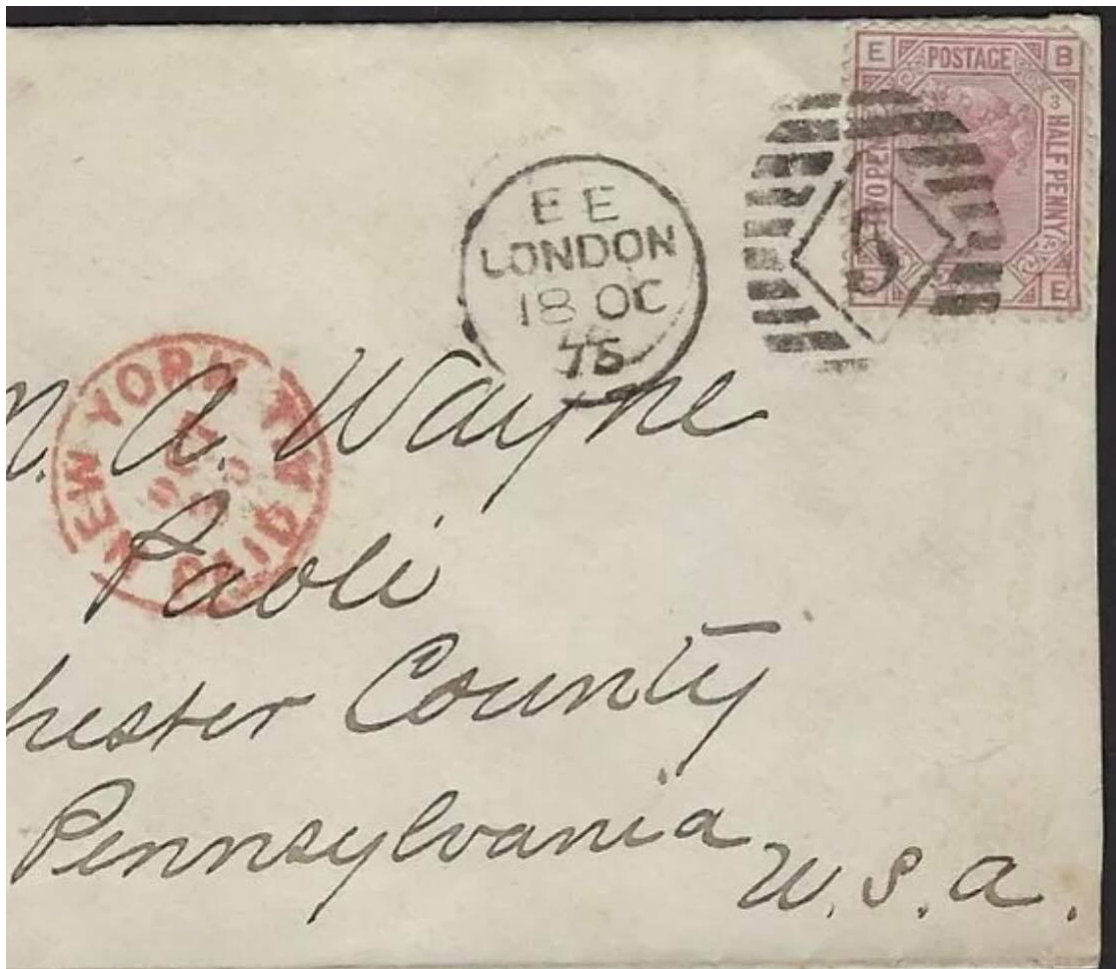 E POSTAGE B
TWO PEN
3 HALF PENNY
E
EE
LONDON
18 OC
75
5
NEW YORK
PAID
OCT
n. A. Wayne
Paoli
hester County
Pennsylvania
U.S.A.